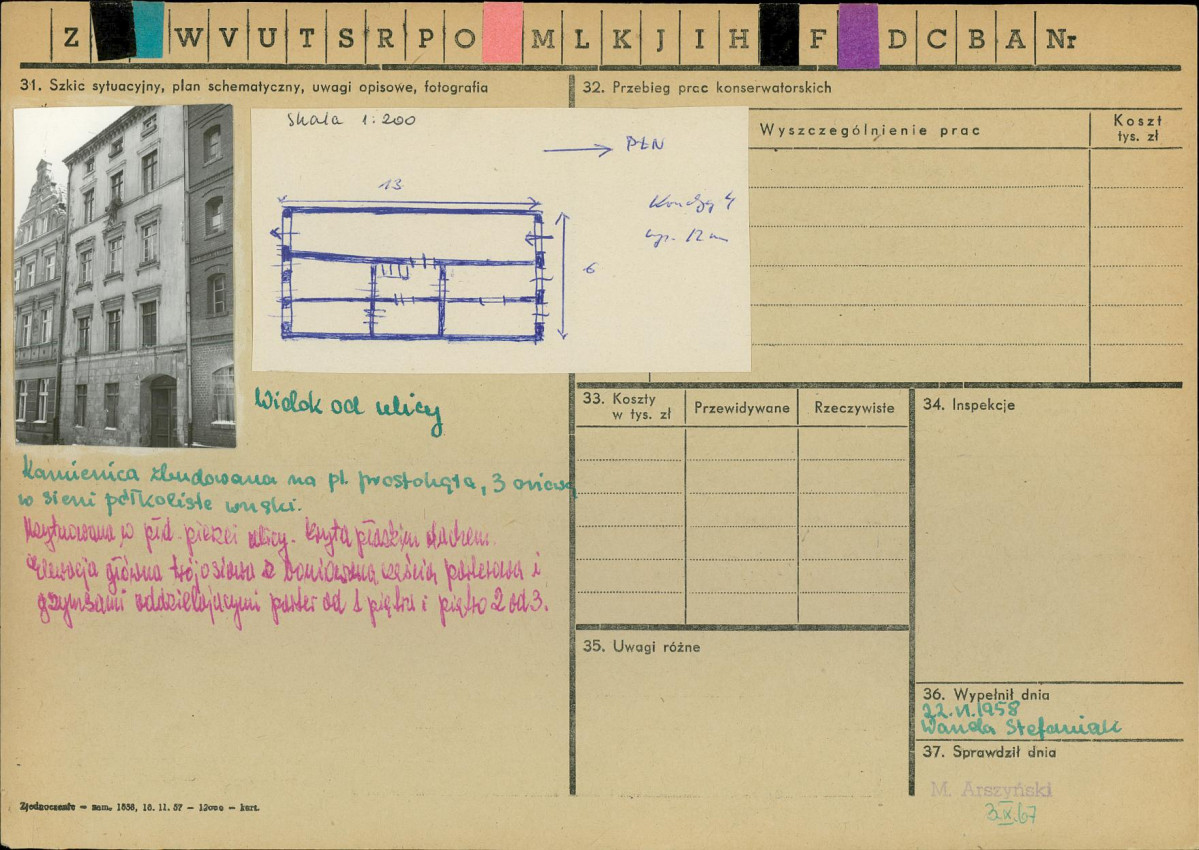 Z W V U T S R P O M L K J I H F D C B A Nr
31. Szkic sytuacyjny, plan schematyczny, uwagi opisowe, fotografia
32. Przebieg prac konserwatorskich
Skala 1:200
→ PŁN
13
6
Kondyg 4
wys. 12 m
Wyszczególnienie prac
Koszt
tys. zł
Widok od ulicy
Kamienica zbudowana na pl. prostokąta, 3 osiowa
w sieni półkoliste wnęki.
Usytuowana w płd. pierzei ulicy. Kryta płaskim dachem.
Elewacja główna trójosiowa z boniowaną częścią parterową i
gzymsami oddzielającymi parter od 1 piętra i piętro 2 od 3.
33. Koszty
w tys. zł
Przewidywane
Rzeczywiste
34. Inspekcje
35. Uwagi różne
36. Wypełnił dnia
22.VI.1958
Wanda Stefaniak
37. Sprawdził dnia
M. Arszyński
3.IX.67
Zjednoczenie — zam. 1636, 16. 11. 57 — 12000 — kart.